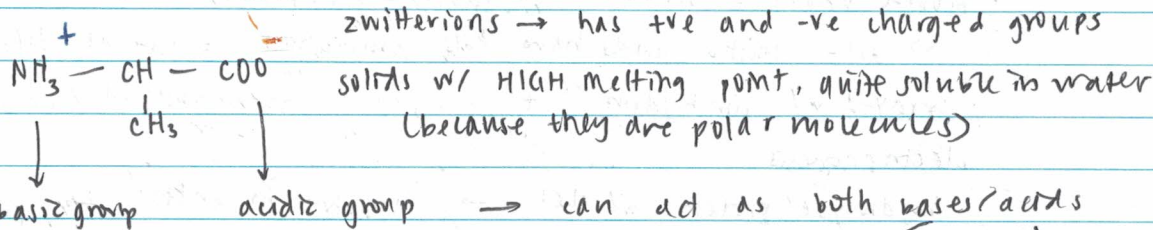 zwitterions → has +ve and -ve charged groups
+ -
NH₃ — CH — COO
CH₃
solids w/ HIGH melting point, quite soluble in water
(because they are polar molecules)
basic group acidic group → can act as both bases/acids